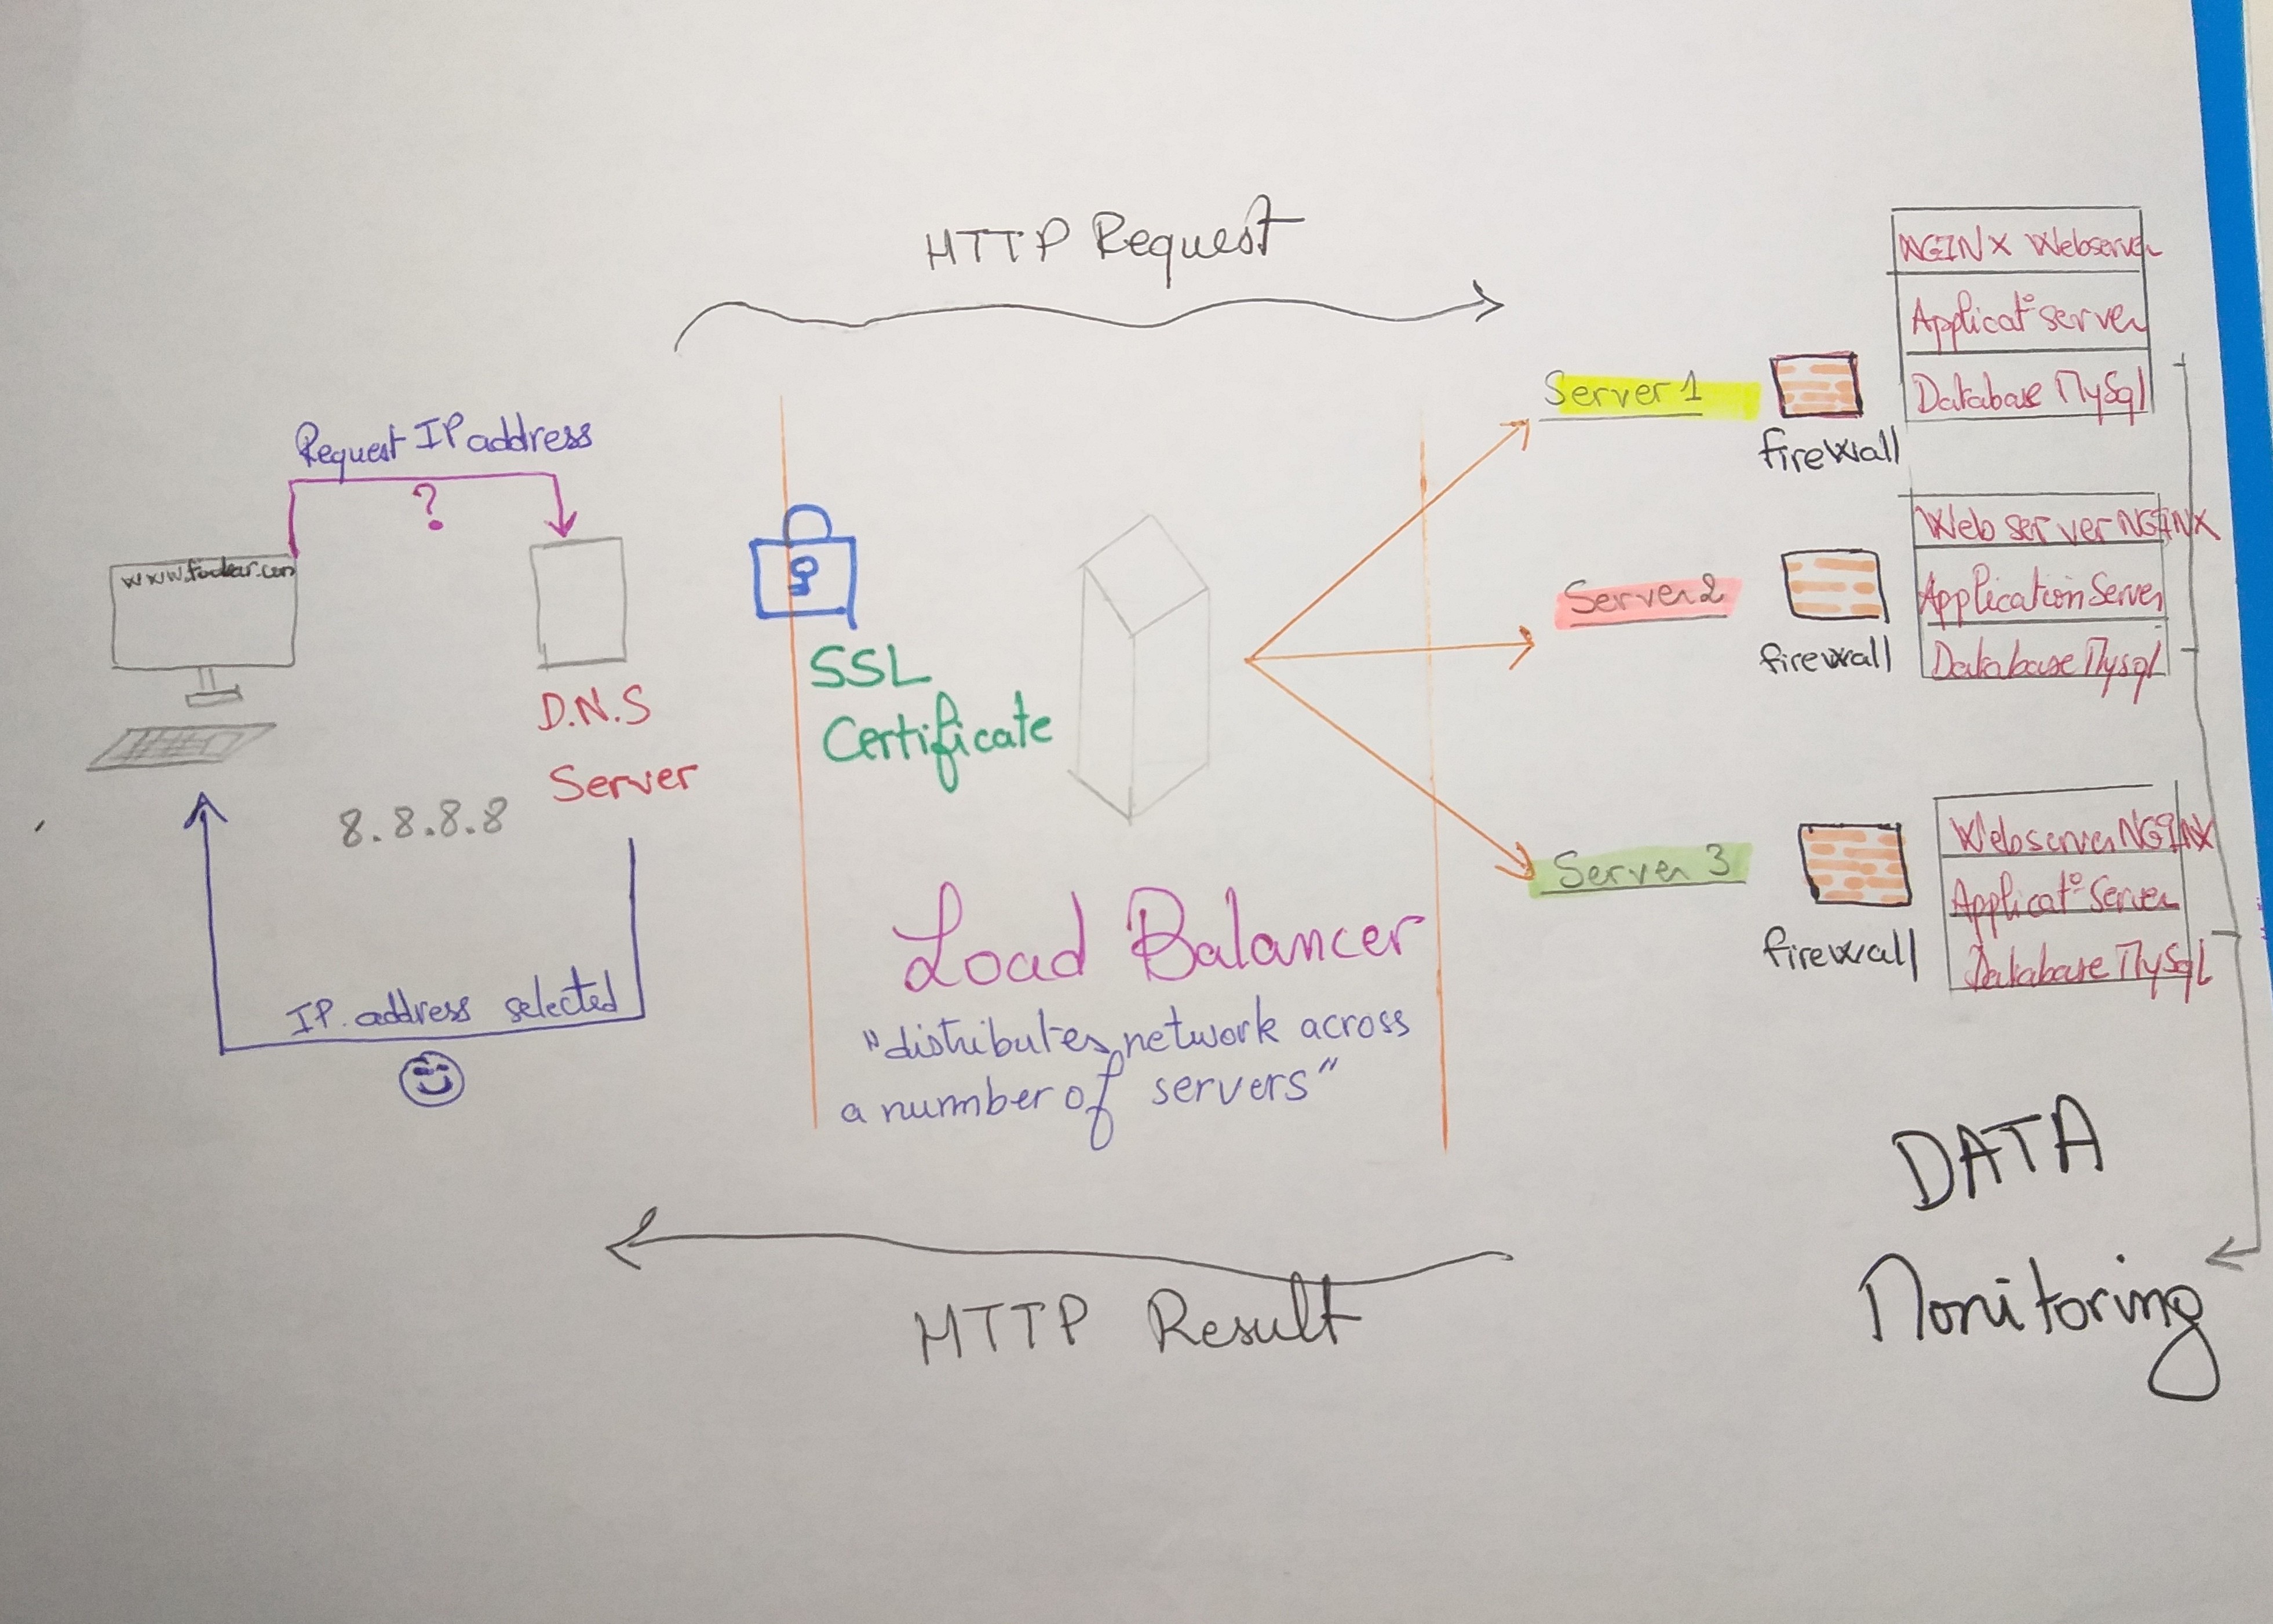 HTTP Request
Request IP address
?
D.N.S
Server
8.8.8.8
IP. address selected
SSL
Certificate
Load Balancer
"distributes network across
a nummber of servers"
Server 1
firewall
NGINX Webserver
Applicat° server
Database MySql
Server 2
firewall
Web server NGINX
Application Server
Database Mysql
Server 3
firewall
Webserver NGINX
Applicat° Server
Database MySqL
DATA
Monitoring
HTTP Result